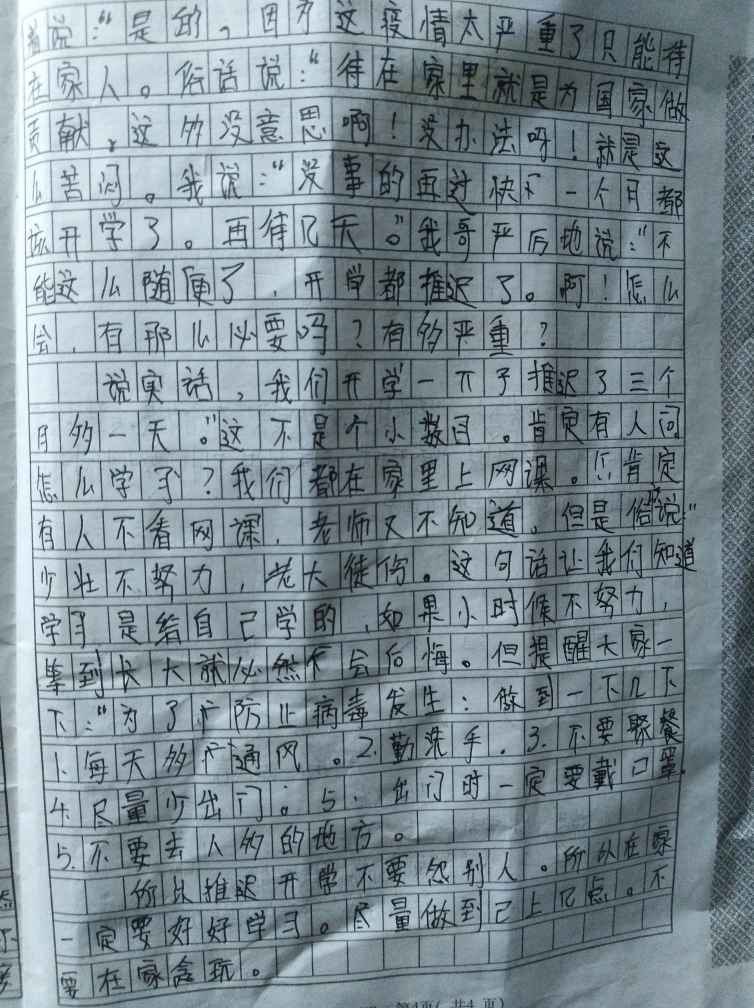 着说:“是的,因为这疫情太严重了只能待
在家人。俗话说:“待在家里就是为国家做
贡献,这多没意思啊!没办法呀!就是这
么苦闷。我说:“没事的再过快不一个月都
该开学了。再待几天。”我哥严厉地说:“不
能这么随便了,开学都推迟了。啊!怎么
会,有那么必要吗?有多严重?
说实话,我们开学一下子推迟了三个
月多一天。”这不是个小数目。肯定有人问
怎么学习?我们都在家里上网课。肯定
有人不看网课,老师又不知道,但是俗话说:“
少壮不努力,老大徒伤。这句话让我们知道
学习是给自己学的,如果小时候不努力,
等到长大就必然会后悔。但提醒大家一
下:“为了防止病毒发生:做到一下几下
1.每天多通风。2.勤洗手.3.不要聚餐
4.尽量少出门。5.出门时一定要戴口罩.
5.不要去人多的地方。
所以推迟开学不要怨别人。所以在家
一定要好好学习。尽量做到已上几点。不
要在家贪玩。
第4页(共4页)